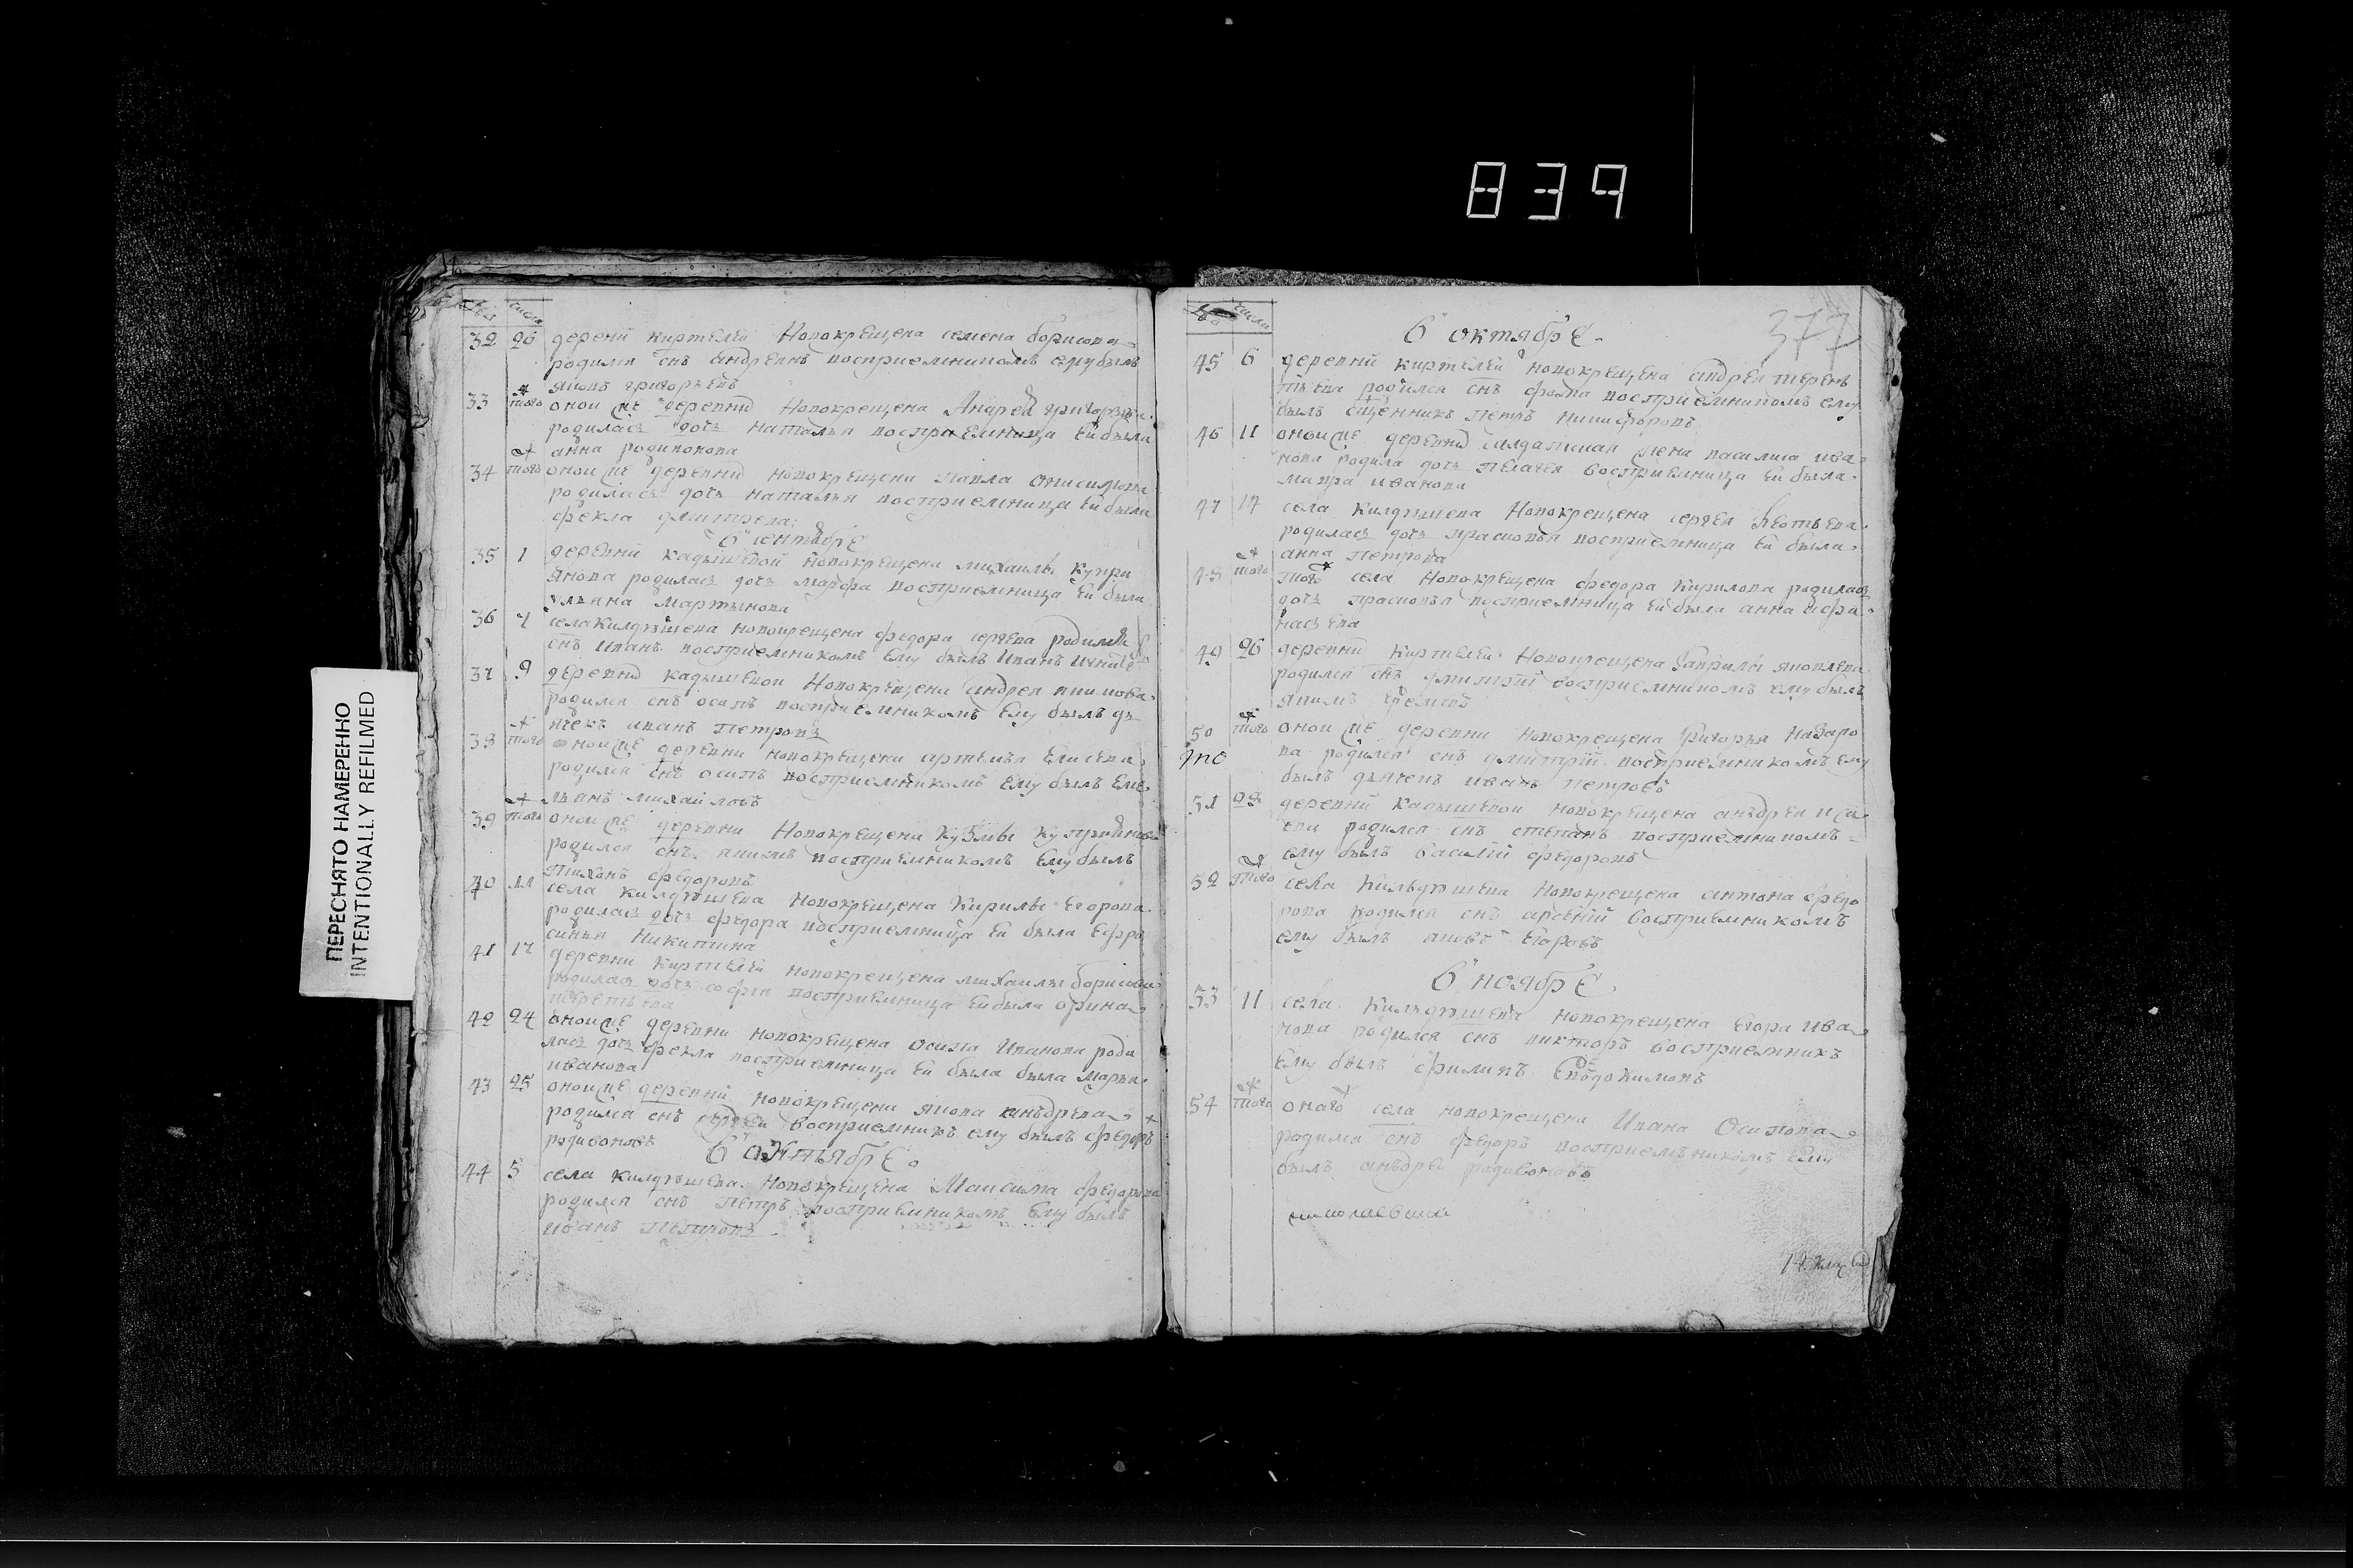 839
ПЕРЕСНЯТО НАМЕРЕННО
INTENTIONALLY REFILMED
числа
32 26 дерени киртелеи Новокрещена семена борисова
родился снъ андреянъ восприемникомъ ему былъ
яковъ григорьевъ
33 того оной же деревни Новокрещена Андрея григорьева
родилась дочь наталья восприемница ей была
анна родионова
34 того оной же деревни новокрещена павла онисимова
родилась дочь наталья восприемница ей была
фекла дмитрева
В сентябре
35 1 деревни кадышевой новокрещена михаилы купри
янова родилась дочь марфа восприемница ей была
ульяна мартынова
36 4 села килдюшева новокрещена федора сергева родился
снъ иванъ восприемникомъ ему былъ иванъ
37 9 деревни кадышевой Новокрещена андрея якимова
родился снъ осипъ восприемникомъ ему былъ дь
ячекъ иванъ петровъ
38 того оной же деревни новокрещена артемья елисева
родился снъ осипъ восприемникомъ ему былъ еме
льянъ михайловъ
39 того оной же деревни Новокрещена кузмы куприянова
родился снъ якимъ восприемникомъ ему былъ
тихонъ федоровъ
40 11 села килдюшева новокрещена кирилы егорова
родилась дочь федора восприемница ей была ефро
синья никитина
41 17 деревни киртелеи новокрещена михаилы борисова
родилась дочь софья восприемница ей была орина
42 24 оной же деревни новокрещена осипа иванова роди
лась дочь фекла восприемница ей была была марья
иванова
43 25 оной же деревни новокрещена якова анъдрева
родился снъ сергеи восприемникъ ему былъ федоръ
родивоновъ
В октябре
44 5 села килдюшева новокрещена Максима федорова
родился снъ петръ восприемникомъ ему былъ
иванъ петровъ
числа
377
В октябре
45 6 деревни киртелеи новокрещена андрея терень
тьева родился снъ фома восприемникомъ ему
былъ сщенникъ петръ никифоровъ
46 11 оной же деревни салдатская жена василиса ива
нова родила дочь пелагея восприемница ей была
мавра иванова
47 17 села килдюшева Новокрещена сергея
родилась дочь прасковья восприемница ей была
анна петрова
48 того того села Новокрещена федора кирилова родилась
дочь прасковья восприемница ей была анна афа
насьева
49 26 деревни киртелеи Новокрещена гаврилы яковлева
родился снъ дмитрий восприемникомъ ему былъ
якимъ
50 того оной же деревни новокрещена григорья назаро
ва родился снъ дмитрий восприемникомъ ему
былъ дьячекъ иванъ петровъ
51 28 деревни кадышевой новокрещена анъдрея иса
ева родился снъ степанъ восприемникомъ
ему былъ василий федоровъ
52 того села кильдюшева новокрещена антона федо
рова родился снъ арсений восприемникомъ
ему былъ яковъ егоровъ
В ноябре
53 11 села кильдюшева новокрещена егора ива
нова родился снъ викторъ восприемникъ
ему былъ филипъ евдокимовъ
54 того онаго села новокрещена ивана осипова
родился снъ федоръ восприемъникомъ ему
былъ анъдрей родивоновъ